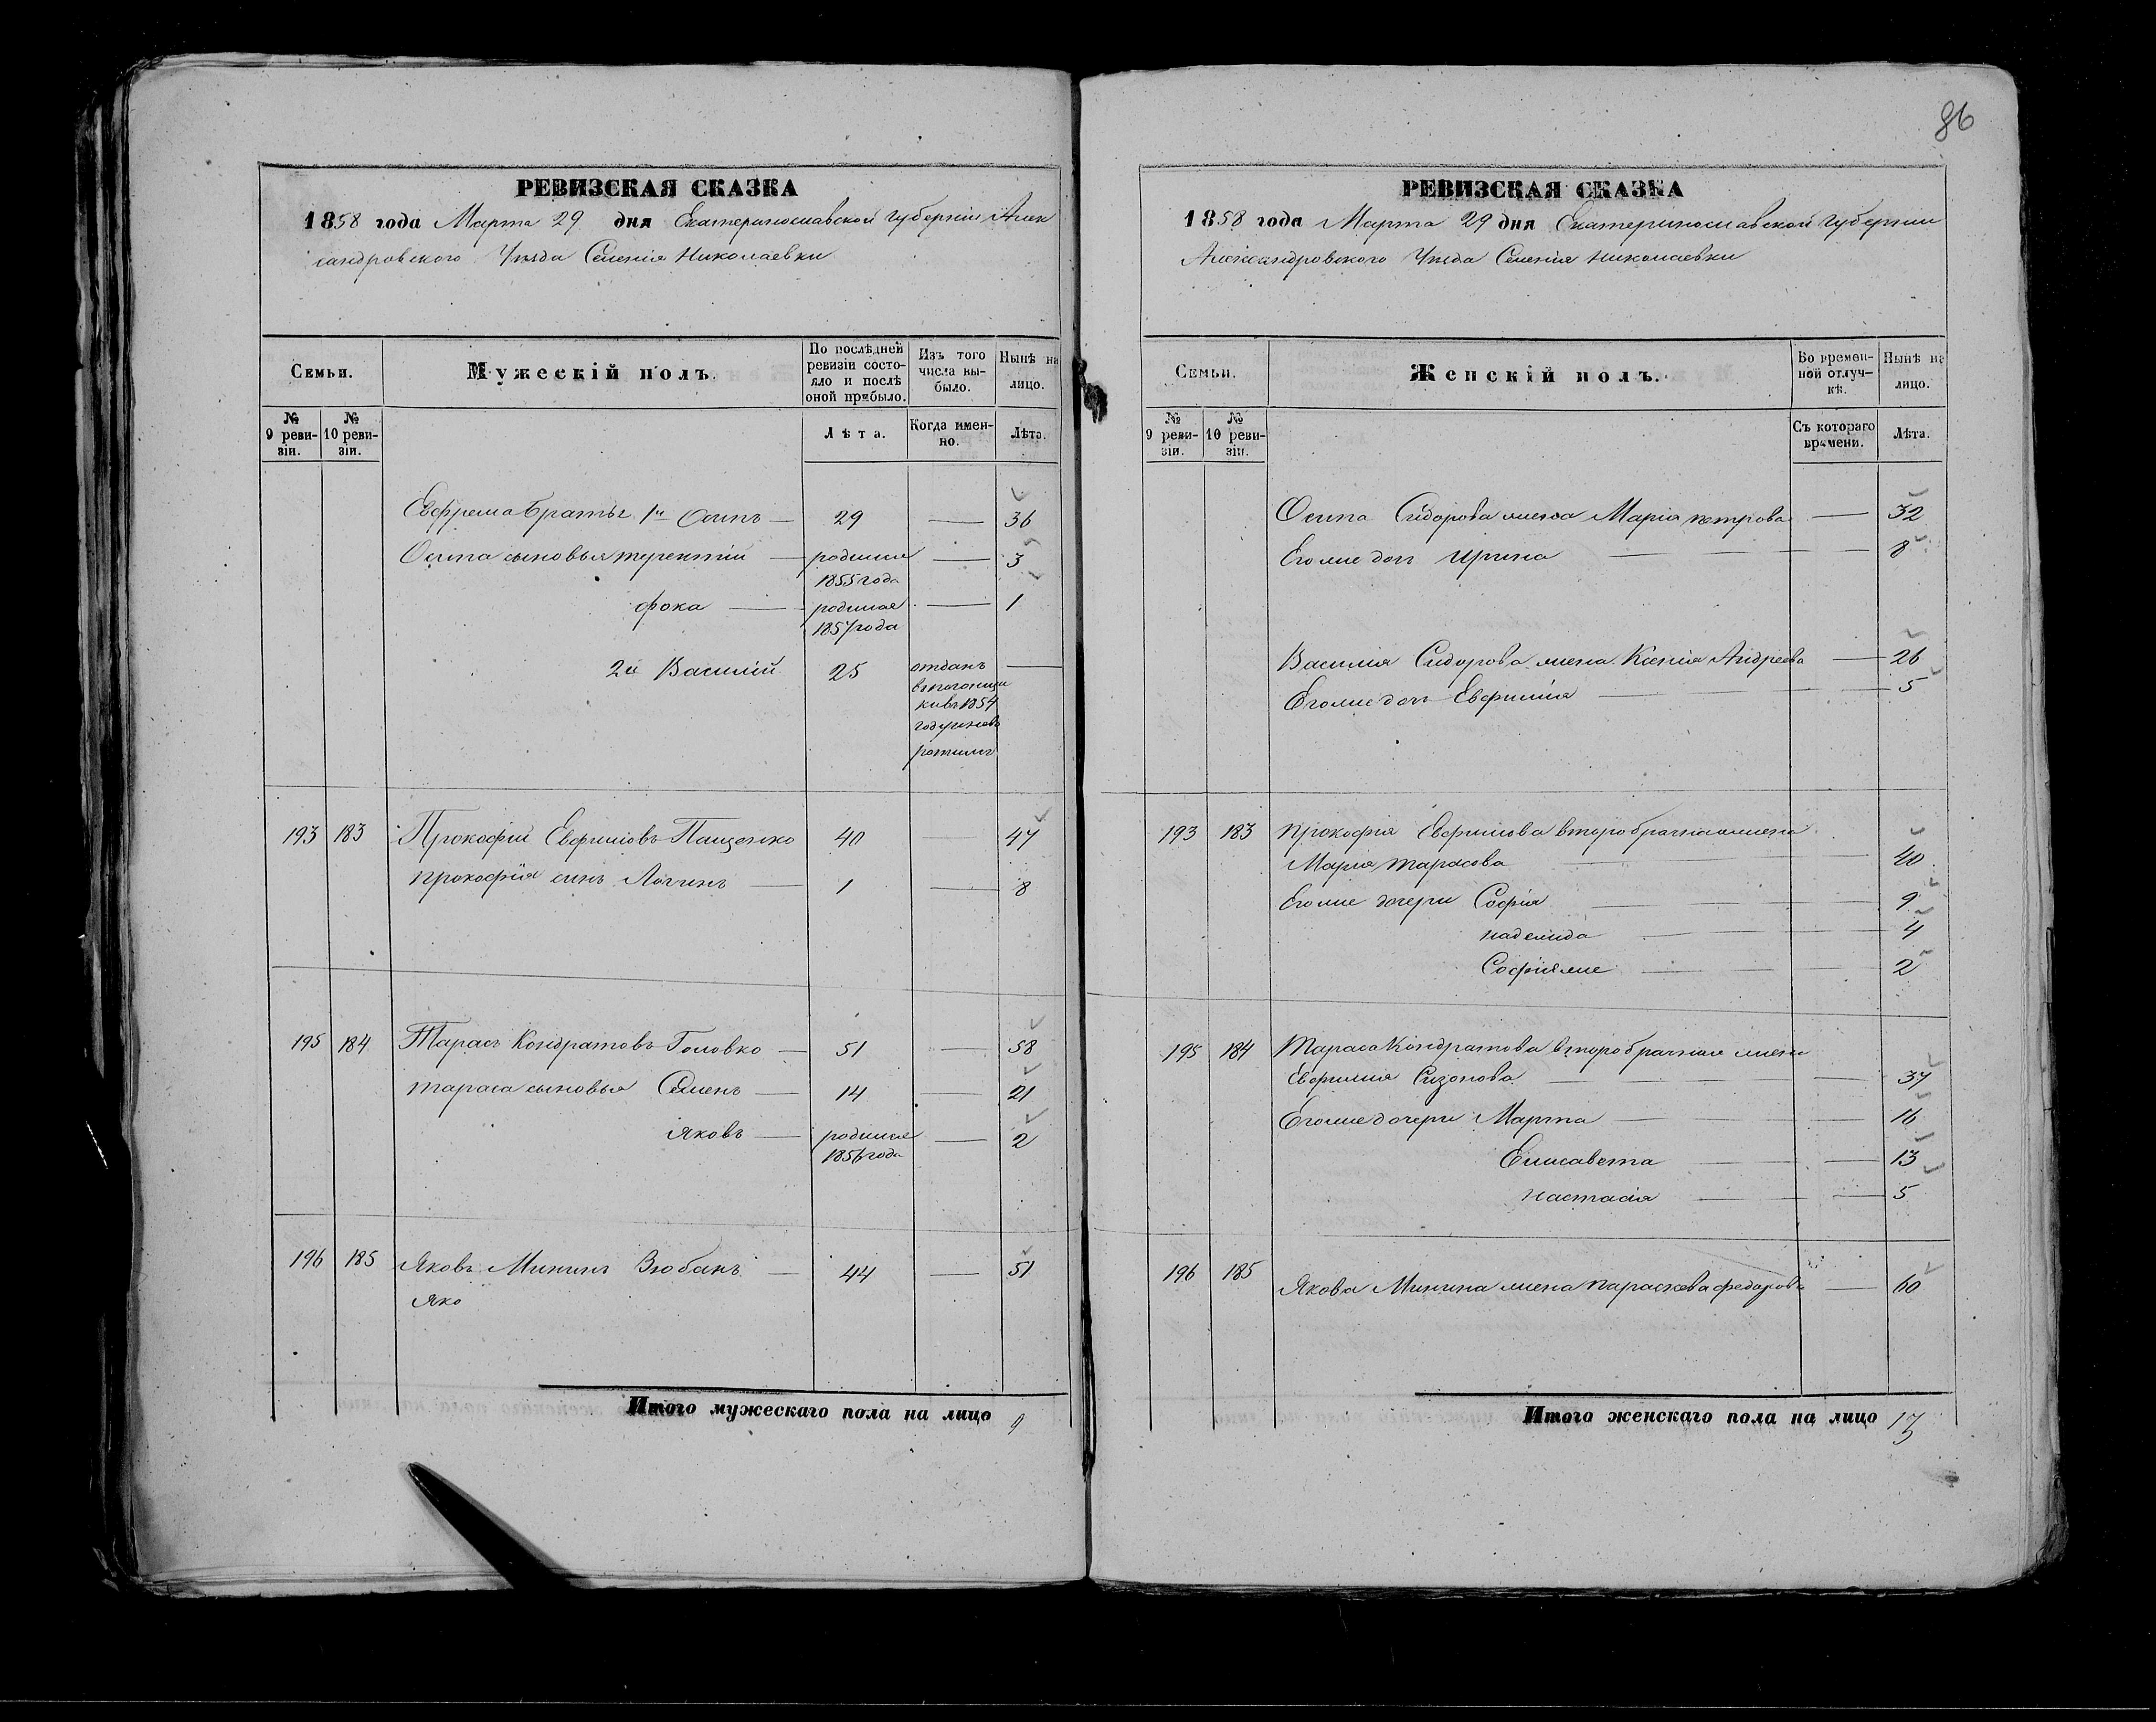 86
РЕВИЗСКАЯ СКАЗКА
1858 года Марта 29 дня Екатеринославской губерніи Алек
сандровского Уѣзда Селенія Николаевки
Семьи.
Мужескій полъ.
По послѣдней ревизіи состояло и послѣ оной прибыло.
Изъ того числа выбыло.
Нынѣ на лицо.
№ 9 ревизіи.
№ 10 ревизіи.
Лѣта.
Когда именно.
Лѣта.
Евфрема братья 1й Осипъ — 29 — 36
Осипа сыновья терентій — родился — 3
1855 года
фока — родился — 1
1857 года
2й Василій 25 отданъ —
въ 1854
193 183 Прокофій Евфимовъ Пащенко 40 — 47
прокофія сынъ Логинъ — 1 — 8
195 184 Тарасъ Кондратовъ Головко — 51 — 58
тараса сыновья Семенъ — 14 — 21
яковъ — родился — 2
1856 года
196 185 Яковъ Мининъ Взюбанъ — 44 — 51
Яко
Итого мужескаго пола на лицо 9
РЕВИЗСКАЯ СКАЗКА
1858 года Марта 29 дня Екатеринославской губерніи
Александровского Уѣзда Селенія Николаевки
Семьи.
Женскій полъ.
Во временной отлучкѣ.
Нынѣ на лицо.
№ 9 ревизіи.
№ 10 ревизіи.
Съ котораго времени.
Лѣта.
Осипа Сидорова жена Марія петрова — 32
Егоже дочь Ирина — 8
Василія Сидорова жена Ксенія Андреева — 26
Егоже дочь Евфимія — 5
193 183 прокофія Евфимова второбрачная жена
Марія тарасова — 40
Егоже дочери Софія — 9
надежда — 4
Софія же — 2
195 184 Тараса Кондратова второбрачная жена
Евфимия Сизонова — 37
Егоже дочери Марта — 16
Елисавета — 13
настасія — 5
196 185 Якова Минина жена параскева федорова — 60
Итого женскаго пола на лицо 13